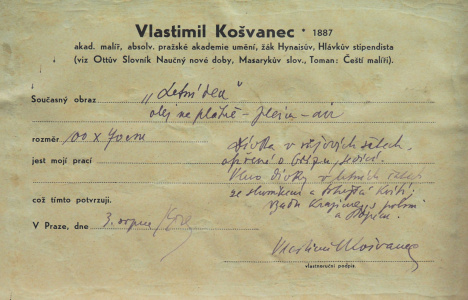 Vlastimil Košvanec * 1887
akad. malíř, absolv. pražské akademie umění, žák Hynaisův, Hlávkův stipendista
(viz Ottův Slovník Naučný nové doby, Masarykův slov., Toman: Čeští malíři).
Současný obraz „Letní den“
olej na plátně - plein - air
rozměr 100 x 70 cm
Dívka v růžových šatech,
jest mojí prací opřená o břízu, sedící.
Vlevo dívky v letních šatech
se slunníkem a
což tímto potvrzuji.
V Praze, dne 3. srpna
Vlastimil Košvanec
vlastnoruční podpis.